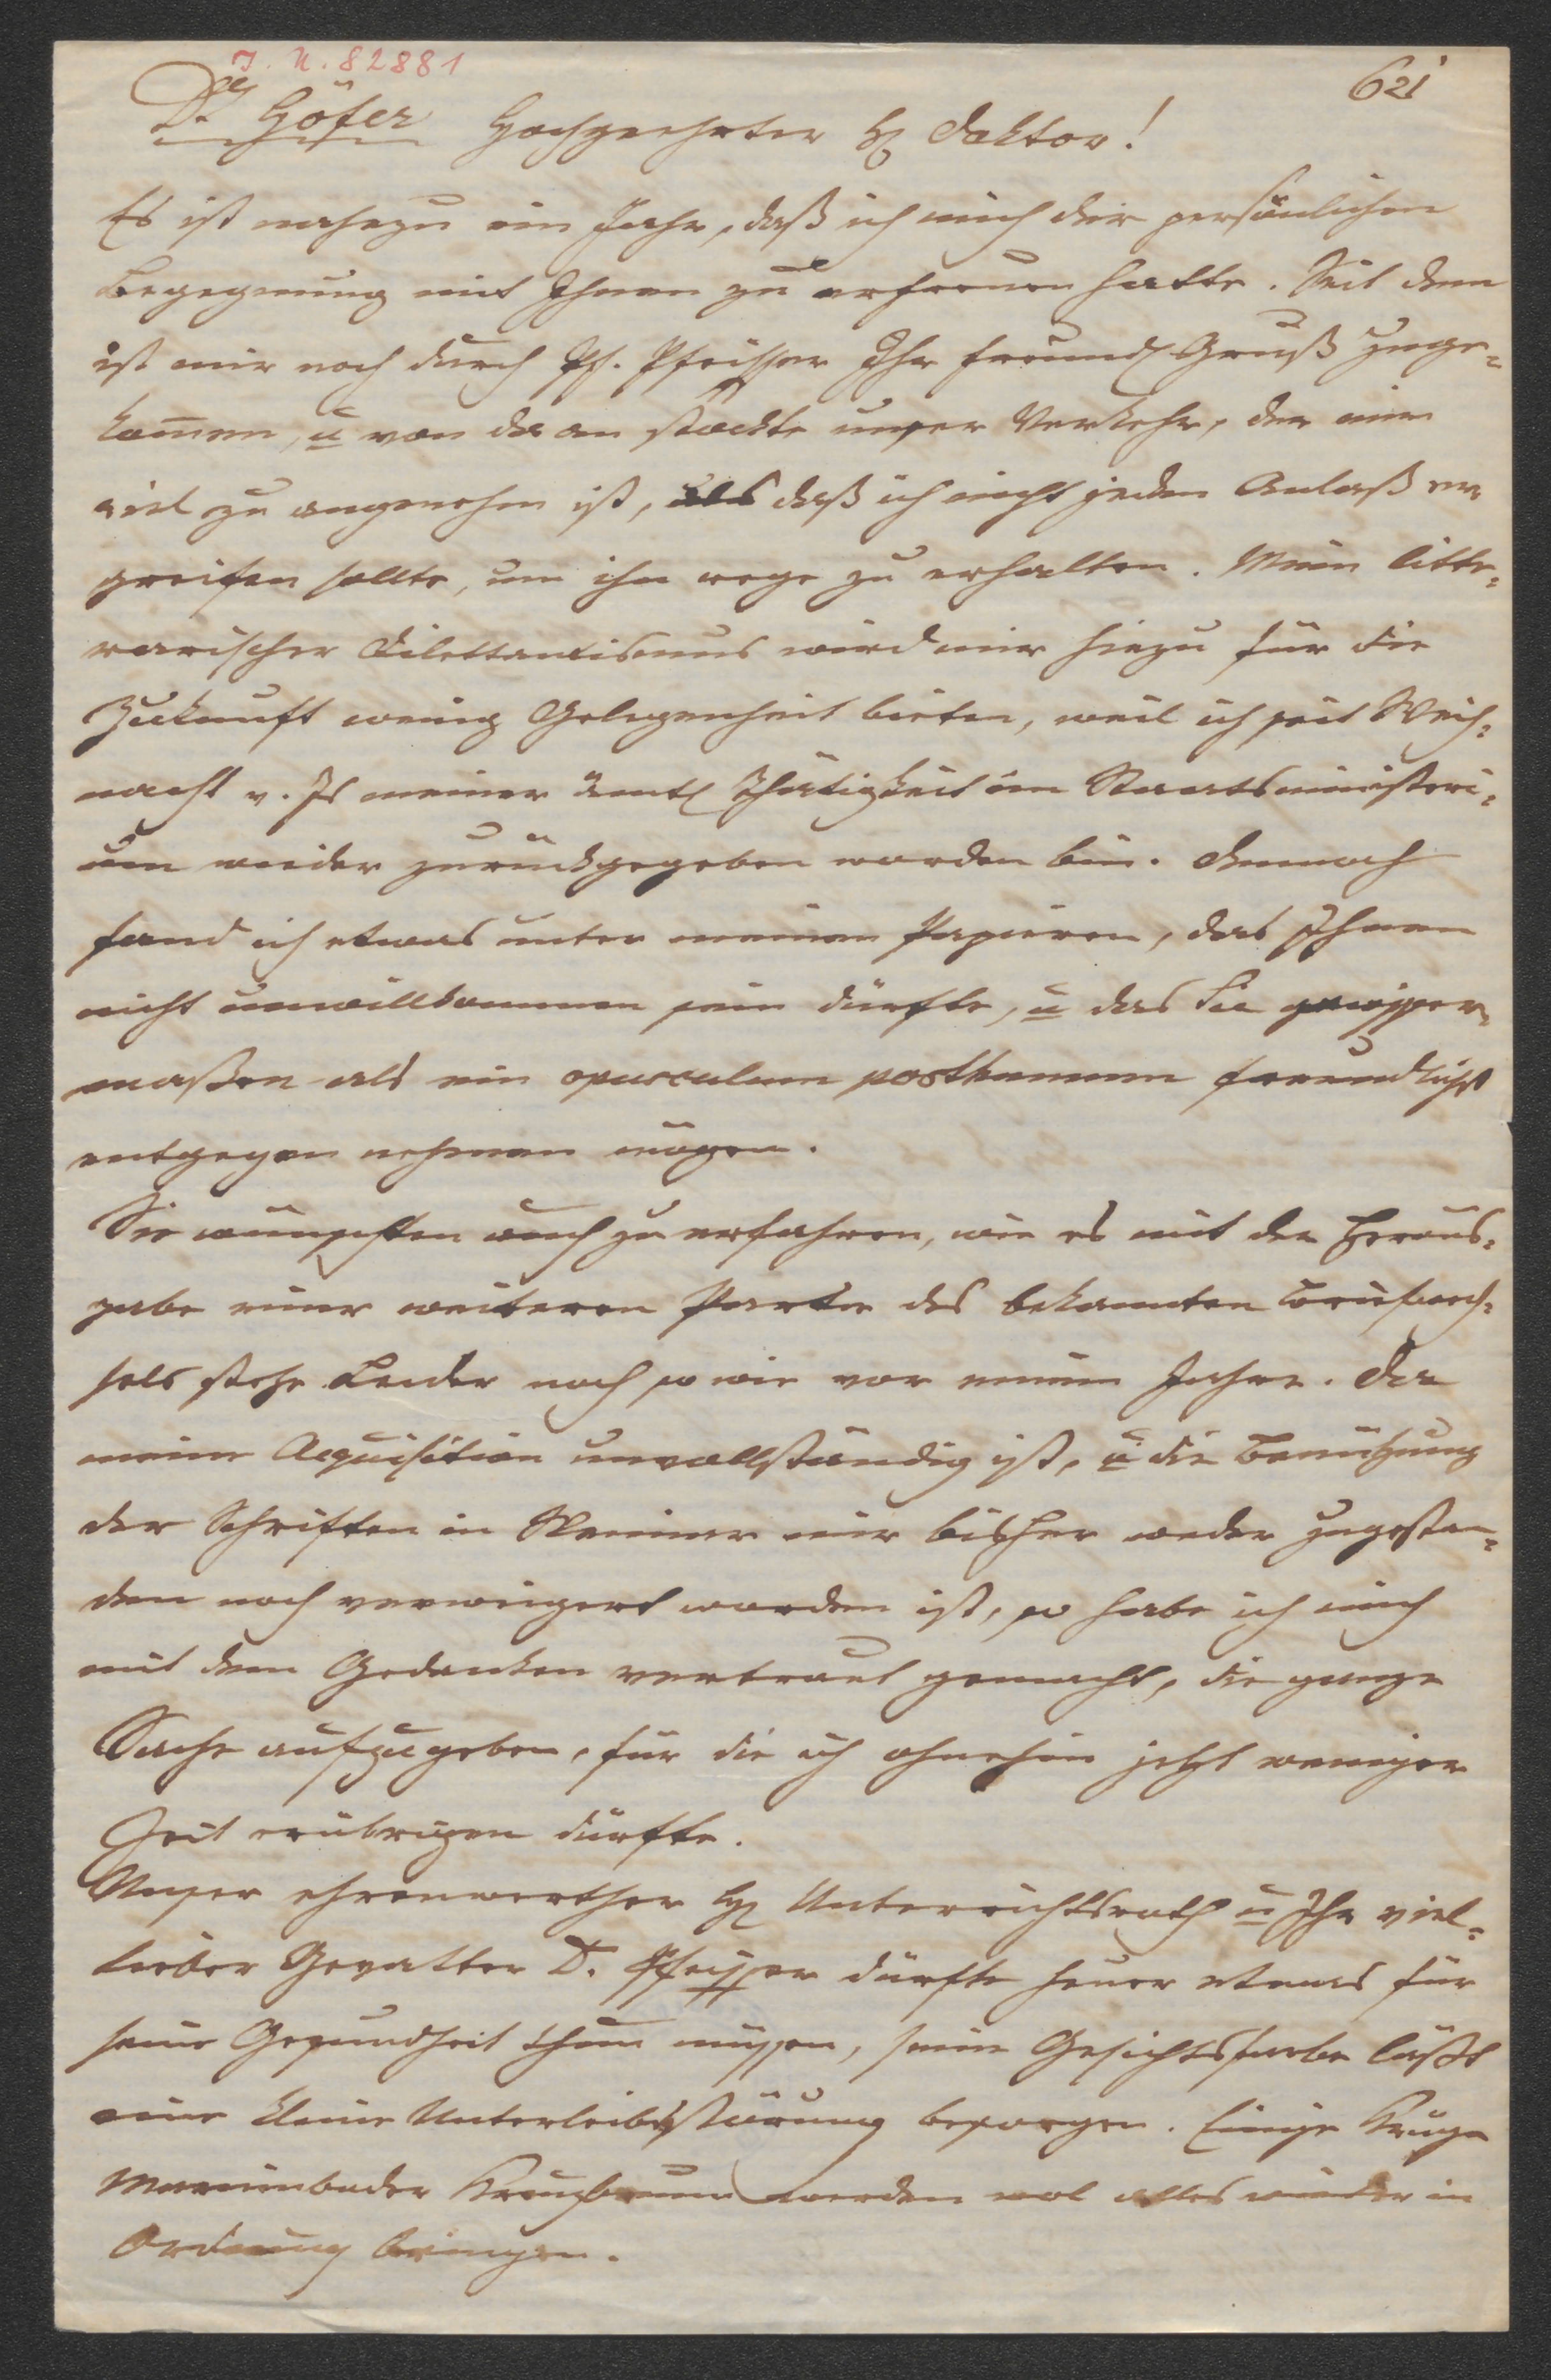 J. N. 82881
621
Dr Höfer Hochgeehrter H. Doktor!
Es ist nahezu ein Jahr, daß ich mich der persönlichen
Begegnung mit Ihnen zu erfreuen hatte. Seit dem
ist mir noch durch Hr. Pfeiffer Ihr freundl Gruß zuge¬
kommen, u von da an stockte unser Verkehr, der mir
viel zu angenehm ist, als daß ich nicht jeden Anlaß er
greifen sollte, um ihn rege zu erhalten. Mein litte¬
rarischer Dilettantismus wird mir hiezu für die
Zukunft wenig Gelegenheit bieten, weil ich seit Weih¬
nacht v. Js meiner ämtl Thätigkeit im Staatsministeri¬
um wieder zurückgegeben worden bin. Dennoch
fand ich etwas unter meinen Papieren, das Ihnen
nicht unwillkommen sein dürfte, u das Sie gewisser
maßen als ein opusculum posthumum freundlichst
entgegen nehmen mögen.
Sie wünschten auch zu erfahren, wie es mit der Heraus¬
gabe einer weiteren Partie des bekannten Briefwech¬
sels stehe. Leider noch so wie vor einem Jahre. Da
meine Acquisition unvollständig ist, u die Benützung
der Schriften in Weimar mir bisher weder zugestan¬
den noch verweigert worden ist, so habe ich mich
mit dem Gedanken vertraut gemacht, die ganze
Sache aufzugeben, für die ich ohnehin jetzt weniger
Zeit erübrigen dürfte.
Unser ehrenwerther H. Unterrichtsrath u Ihr viel¬
lieber Gevatter D. Pfeiffer dürfte heuer etwas für
seine Gesundheit thun müssen, seine Gesichtsfarbe läßt
eine kleine Unterleibsstörung besorgen. Einige Krüge
Marienbader Kreuzbrunn werden wol alles wieder in
Ordnung bringen.